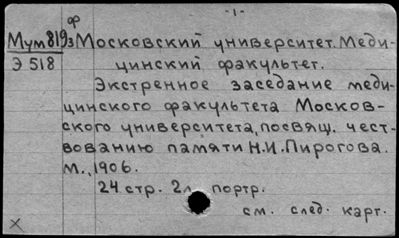 -1-
ф
Мум819з Московский университет. Меди-
Э 518 цинский факультет.
Экстренное заседание меди-
цинского факультета Москов-
ского университета, посвящ. чест-
вованию памяти Н.И. Пирогова.
М., 1906.
24 стр. 2 л. портр.
см. след. карт.
х